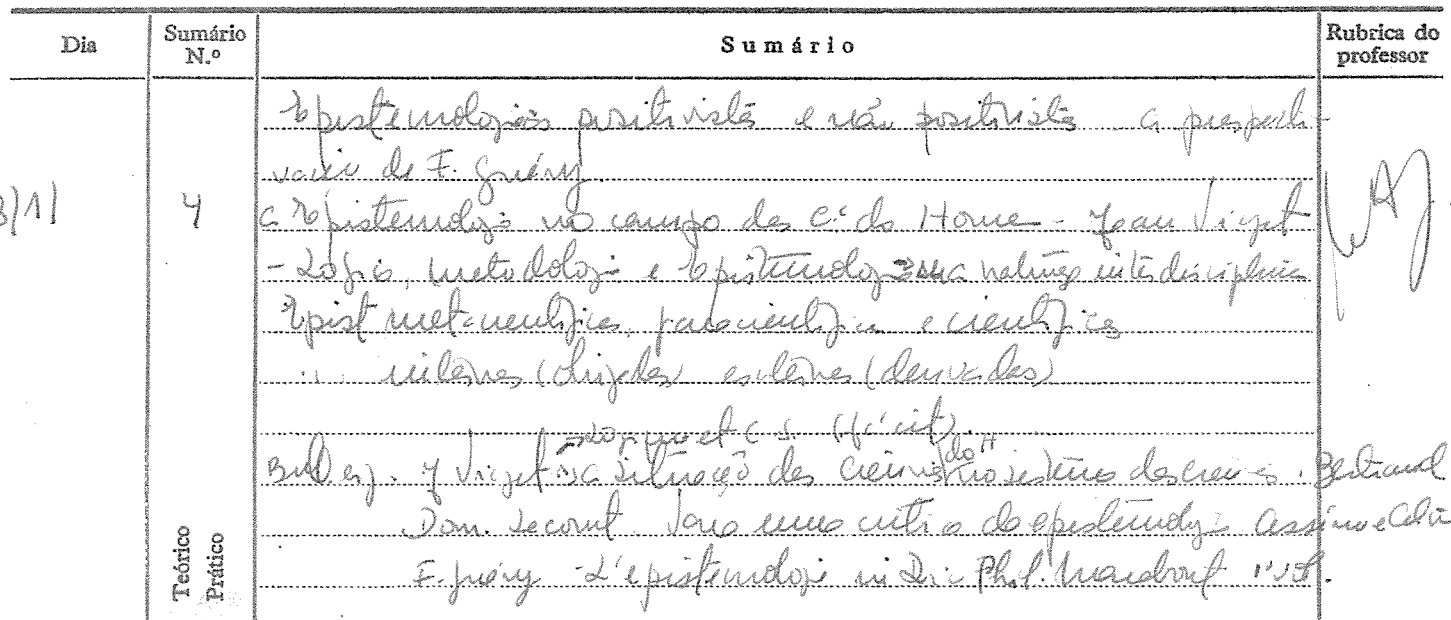 Dia Sumário N.º Sumário Rubrica do professor
Epistemologias positivistas e não positivistas a perspecti-
vação de F. Guéry
8/1/ 4 A Epistemologia no campo das C.as do Home - Jean Piaget
- Lógica, metodologia e Epistemologia sua natureza interdisciplinar
Epist meta-científica, paracientífica e científica
internas (dirigidas) externas (derivadas)
Logique et C. S. (já cit).
J Piaget A situação das ciências do H no sistema das ciências. Bertrand
Dom. Lecourt Para uma crítica da epistemologia Assírio e Alvim
F. Guéry - L'epistemologie in Dic Phil. Marabout
Teórico
Prático